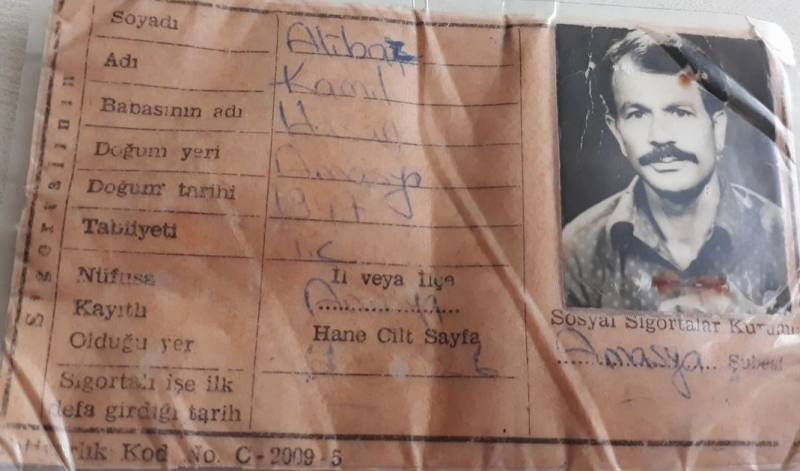 Sigortalının
Soyadı Alibaz
Adı Kamil
Babasının adı
Doğum yeri Amasya
Doğum tarihi
Tabiiyeti T.C
Nüfusa İl veya İlçe
Kayıtlı Amasya
Olduğu yer Hane Cilt Sayfa
Sigortalı işe ilk
defa girdiği tarih
Sosyal Sigortalar Kurumu
Amasya Şubesi
Kod No. C-2009-5